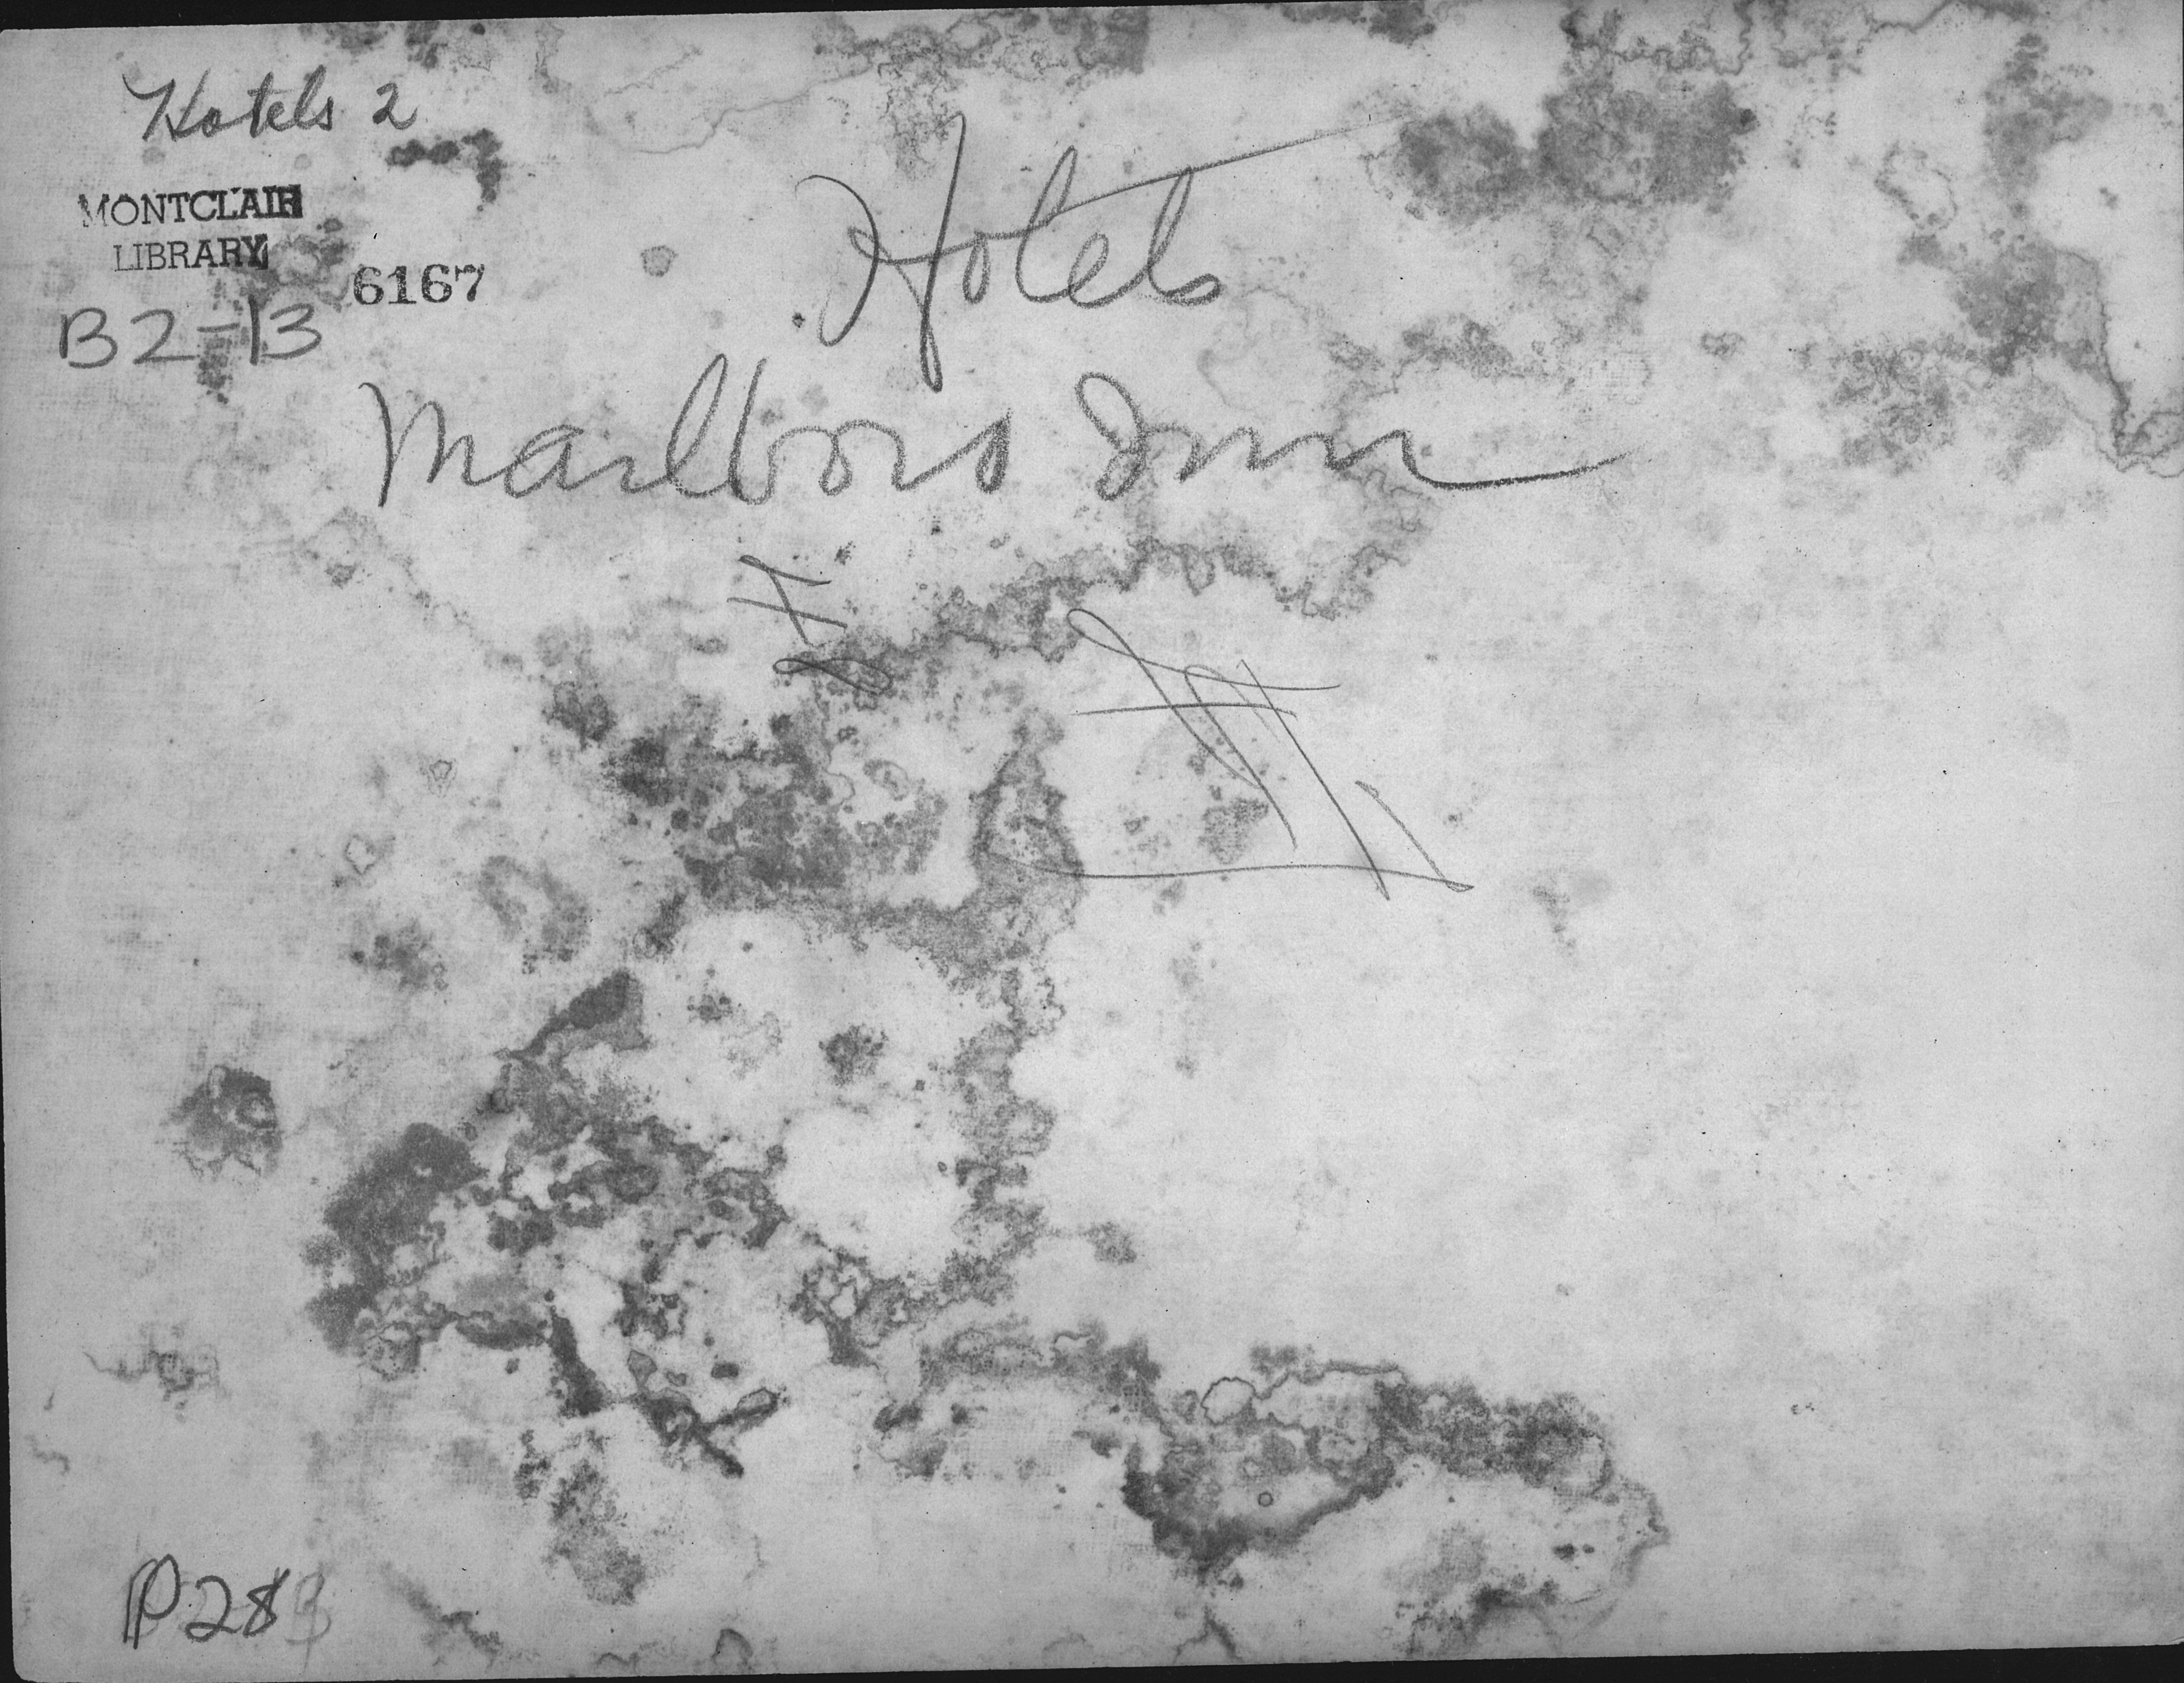 Hotels 2
MONTCLAIR
LIBRARY
6167
B2-13
Hotels
Marlboro Inn
P28